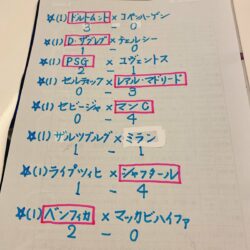 ☆(1) ドルトムント × コペンハーゲン
3 - 0
☆(1) D.ザグレブ × チェルシー
1 - 0
☆(1) PSG × ユヴェントス
2 - 1
☆(1) セルティック × レアル・マドリード
0 - 3
☆(1) セビージャ × マンC
0 - 4
☆(1) ザルツブルグ × ミラン
1 - 1
☆(1) ライプツィヒ × シャフタール
1 - 4
☆(1) ベンフィカ × マッカビハイファ
2 - 0